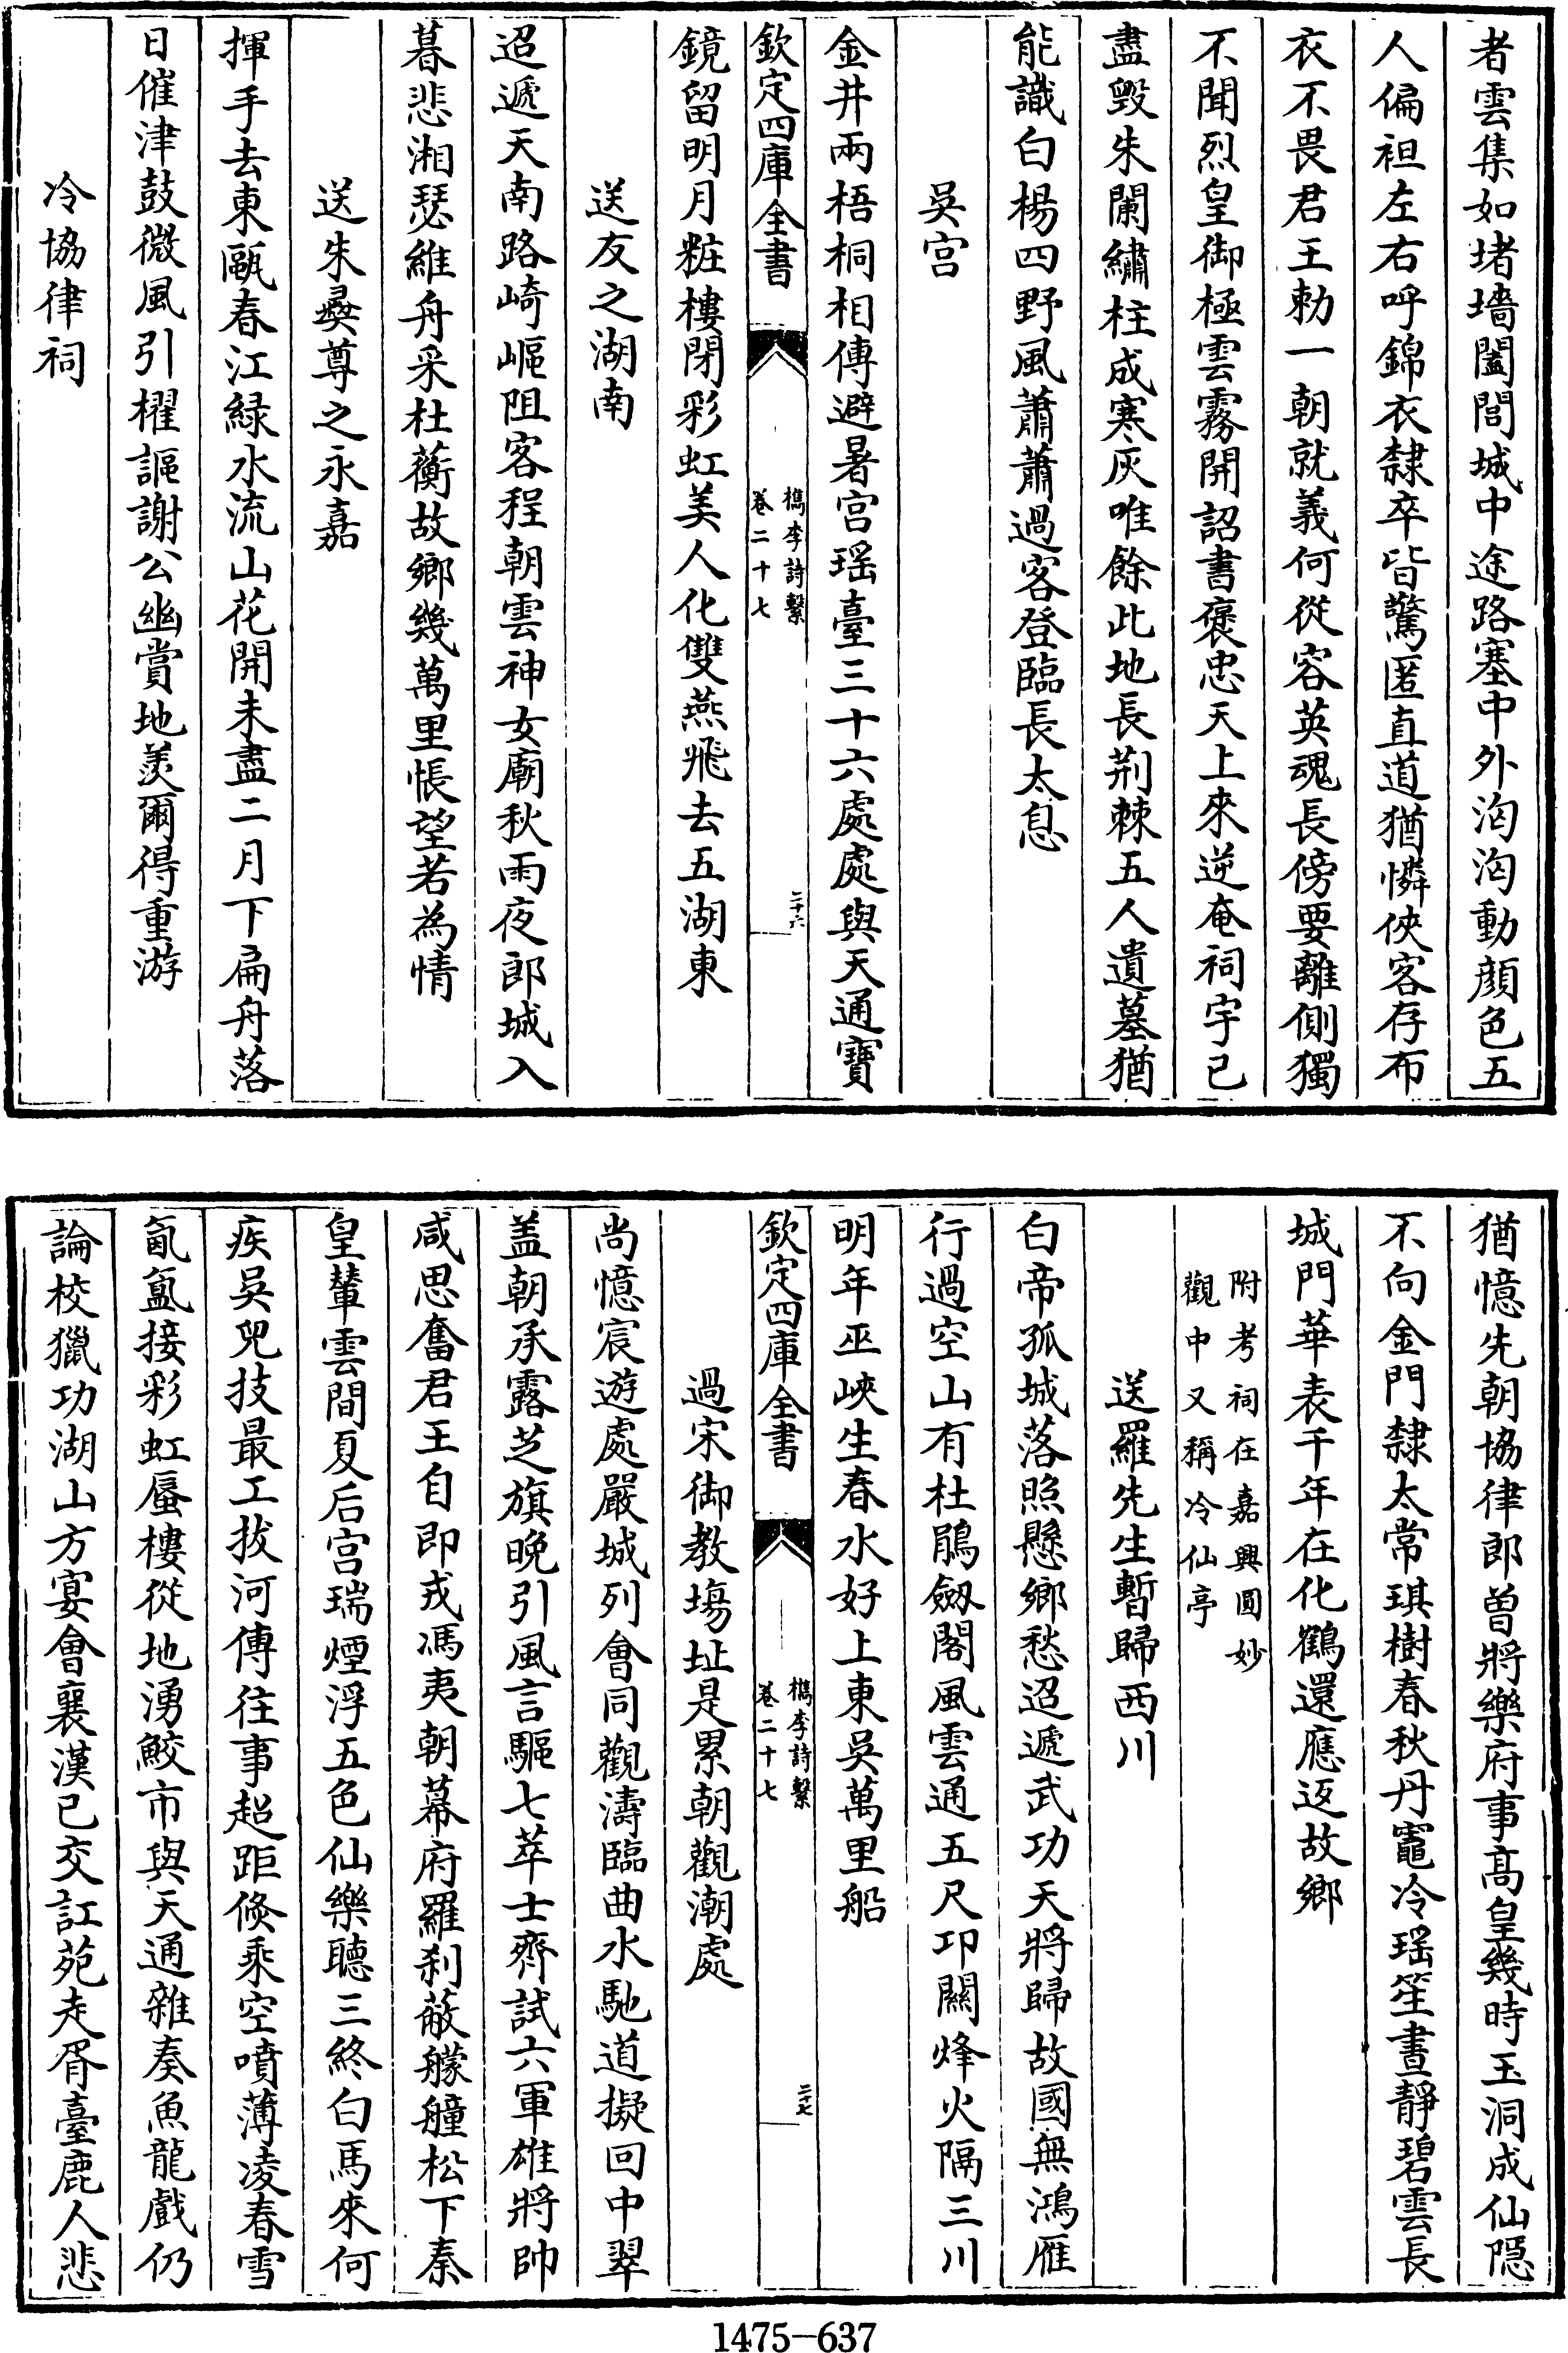 者雲集如堵墻闔閭城中途路塞中外洶洶動顔色五
人偏袒左右呼錦衣隸卒皆驚匿直道猶憐俠客存布
衣不畏君王勅一朝就義何從容英魂長傍要離側獨
不聞烈皇御極雲霧開詔書褒忠天上來逆奄祠宇已
盡毁朱闌繡柱成寒灰唯餘此地長荆棘五人遺墓猶
能識白楊四野風蕭蕭過客登臨長太息
吳宮
金井兩梧桐相傳避暑宮瑶臺三十六處處與天通寶
欽定四庫全書
檇李詩繫
卷二十七
二十六
鏡留明月粧樓閉彩虹美人化雙燕飛去五湖東
送友之湖南
迢遞天南路崎嶇阻客程朝雲神女廟秋雨夜郎城入
暮悲湘瑟維舟采杜蘅故鄉幾萬里悵望若為情
送朱彞尊之永嘉
揮手去東甌春江緑水流山花開未盡二月下扁舟落
日催津鼓微風引櫂謳謝公幽賞地羨爾得重游
冷協律祠
猶憶先朝協律郎曽將樂府事髙皇幾時玉洞成仙隱
不向金門隸太常琪樹春秋丹竈冷瑶笙晝靜碧雲長
城門華表千年在化鶴還應返故鄉
附考祠在嘉興圓妙
觀中又稱冷仙亭
送羅先生暫歸西川
白帝孤城落照懸鄉愁迢遞武功天將歸故國無鴻雁
行過空山有杜鵑劔閣風雲通五尺卭關烽火隔三川
明年巫峽生春水好上東吳萬里船
欽定四庫全書
檇李詩繫
卷二十七
二十七
過宋御教塲址是累朝觀潮處
尚憶宸遊處嚴城列會同觀濤臨曲水馳道擬回中翠
盖朝承露芝旗晩引風言驅七萃士齊試六軍雄將帥
咸思奮君王自即戎馮夷朝幕府羅刹蔽艨艟松下秦
皇輦雲間夏后宮瑞煙浮五色仙樂聽三終白馬來何
疾吳兒技最工拔河傳往事超距倐乘空噴薄凌春雪
氤氲接彩虹蜃樓從地湧鮫市與天通雜奏魚龍戲仍
論校獵功湖山方宴會襄漢已交訌苑走胥臺鹿人悲
1475—637